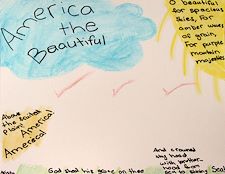 America
the
Beautiful
O beautiful
for spacious
skies, For
amber waves
of grain,
For purple
mountain
majesties
Above
the fruited
Plain
America!
Amereca!
God shed his grace on thee
And crowned
thy hood
with brother-
hood from
sea to shining Sea!